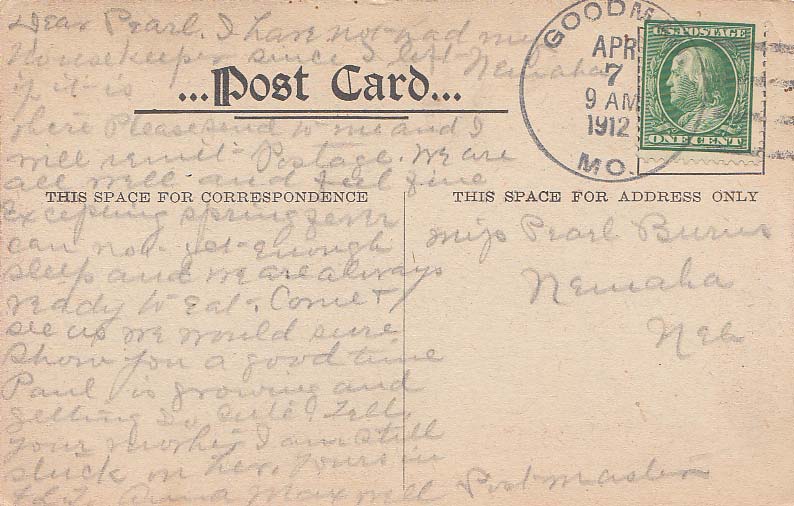 Dear Pearl. I have not had my
Housekeeper since I left Nemaha
if it is
...Post Card...
there Please send to me and I
will remit Postage. We are
all well and feel fine
THIS SPACE FOR CORRESPONDENCE
Excepting spring fever
can not get enough
sleep and we are always
ready to eat. Come &
see us we would sure
show you a good time
Paul is growing and
getting so cute. Tell
your mother I am still
stuck on her, yours in
Anna Maxwell
GOODM
APR
7
9 AM
1912
MO.
U.S. POSTAGE
ONE CENT
THIS SPACE FOR ADDRESS ONLY
Miss Pearl Burns
Nemaha
Neb
Postmaster